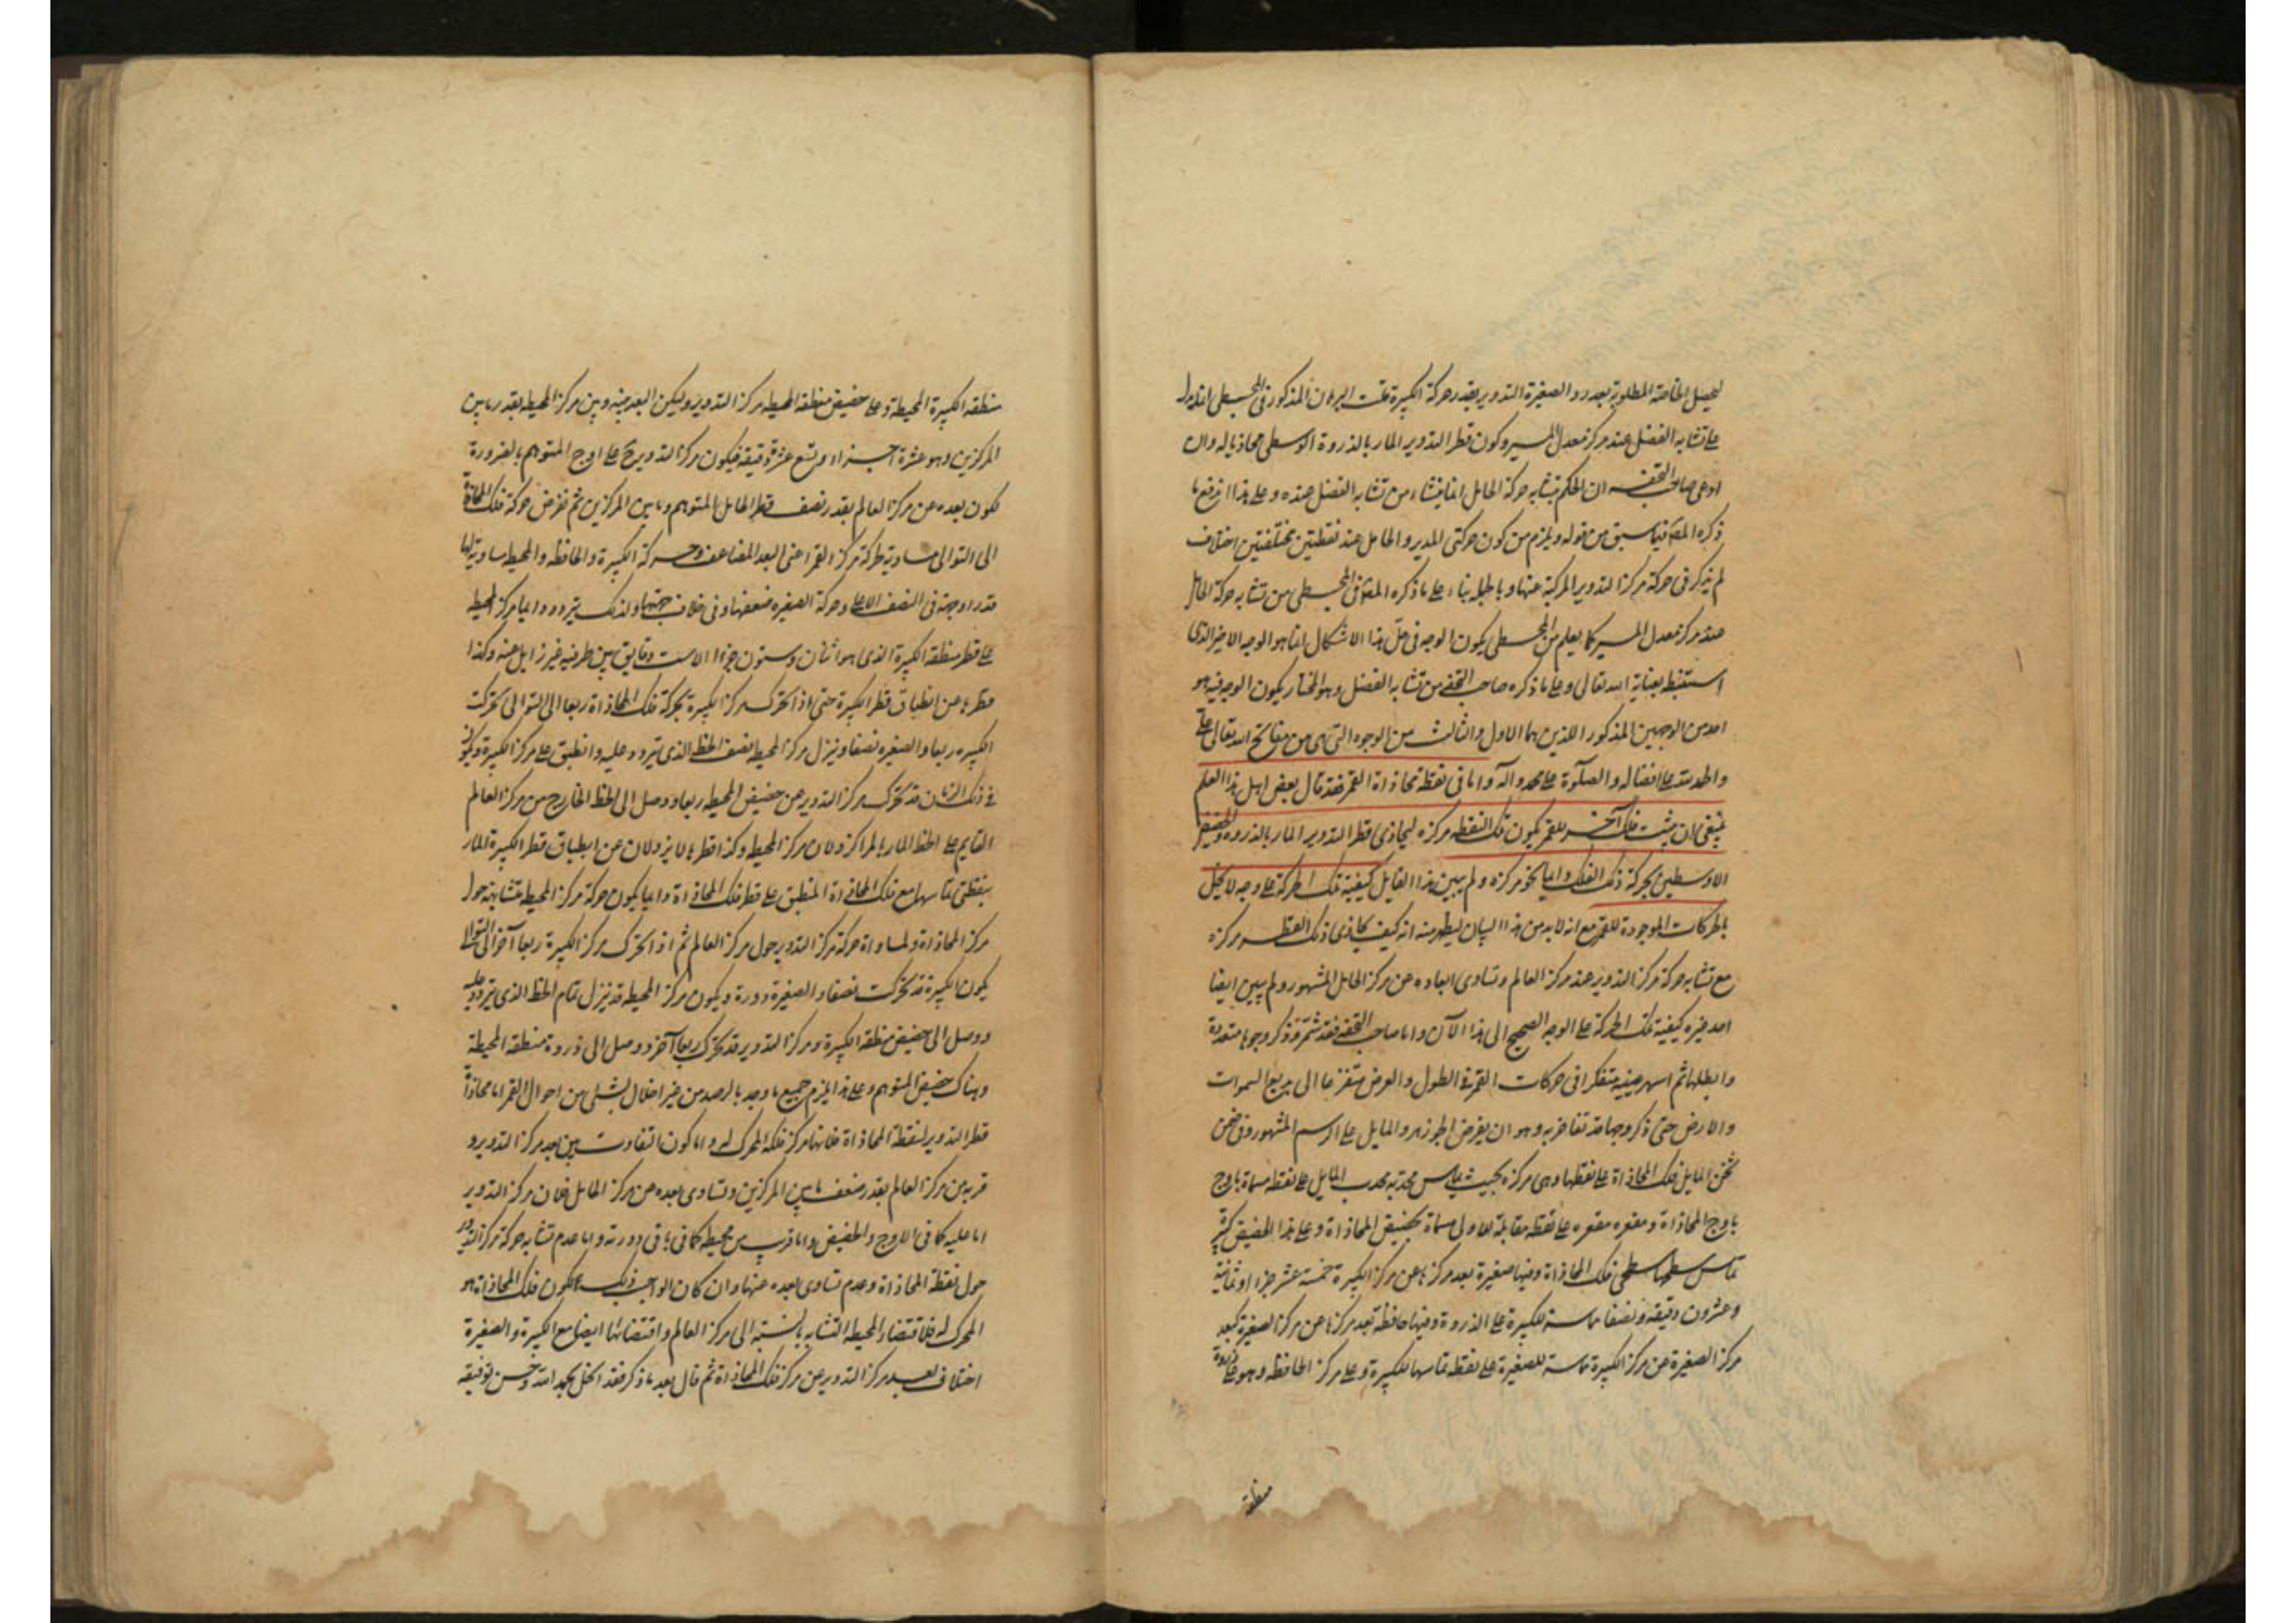 ليحصل الخاصة المطلوبة بعد رد الصغيرة التدوير بقدر حركة الكبيرة تمت البرهان المذكور في المجسطي انما يدل
على تشابه الفضل عند مركز معدل المسير وكون قطر التدوير المار بالذروة الوسطى محاذيا له وان
ادعى صاحب التحفة ان الحكم بتشابه حركة الحامل انما ينشاء من تشابه الفضل عنده وعلى هذا اندفع ما
ذكره المصنف فيما سبق من قوله ويلزم من كون حركتي المدير والحامل عند نقطتين مختلفتين اختلاف
لم يذكر في حركة مركز التدوير المركبة عنها وبالجملة بناء على ما ذكره المصنف في المجسطي من تشابه حركة الحامل
عند مركز معدل المسير كما يعلم من المجسطي يكون الوجه في حل هذا الاشكال انما هو الوجه الاخير الذي
استنبط بعناية الله تعالى وعلى ما ذكره صاحب التحفة من تشابه الفضل وهو المختار يكون الوجه فيه هو
احد من الوجهين المذكور اللذين هما الاول والثالث من الوجوه التي هي من مفاتح الله تعالى على
والحمد لله على افضاله والصلوة على محمد وآله واما في نقطة محاذاة القمر فقد قال بعض اهل هذا العلم
ينبغي ان يثبت فلك آخر للقمر يكون تلك النقطة مركزه ليحاذي قطر التدوير المار بالذروة والحضيض
الاوسطين بحركة ذلك الفلك دايما نحو مركزه ولم يبين هذا القايل كيفية تلك الحركة على وجه لا يخل
بالحركات الموجودة للقمر مع انه لا بد من هذا البيان ليظهر منه انه كيف يحاذي ذلك القطر مركزه
مع تشابه حركة مركز التدوير عند مركز العالم وتساوى ابعاده عن مركز الحامل المشهور ولم يبين ايضا
احد غيره كيفية تلك الحركة على الوجه الصحيح الى هذا الآن واما صاحب التحفة فقد شمر وذكر وجوها متعددة
وابطلها ثم اسهر عينيه متفكرا في حركات القمر في الطول والعرض متفزعا الى بديع السموات
والارض حتى ذكر وجها قد تفاخر به وهو ان يفرض الجوزهر والمايل على الرسم المشهور وفي ضمن
ثخن المايل فلك المحاذاة على نقطتها وهي مركزه بحيث يماس محدبه محدب المايل على نقطة مسماة باوج
باوج المحاذاة ومقعره مقعره على نقطة مقابلة للاولى مسماة بحضيض المحاذاة وعلى هذا الحضيض كرة
تماس سطحها سطحى فلك المحاذاة وفيها صغيرة بعد مركزها عن مركز الكبيرة خمسة عشر جزءا وثمانية
وعشرون دقيقة ونصفا مماسة للكبيرة على الذروة وفيها حافظة بعد مركزها عن مركز الصغيرة كبعد
مركز الصغيرة عن مركز الكبيرة مماسة للصغيرة على نقطة تماسها للكبيرة وعلى مركز الحافظة وهو على ذروة
منطقة
منطقة الكبيرة المحيطة وعلى حضيض منطقة المحيطة مركز التدوير وليكن البعد بينه وبين مركز المحيطة بقدر ما بين
المركزين وهو عشرة اجزاء وتسع عشرة دقيقة فيكون مركز التدوير ح على اوج المتوهم بالضرورة
لكون بعده عن مركز العالم بقدر نصف قطر الحامل المتوهم وما بين المركزين ثم نفرض حركة فلك المحاذاة
الى التوالى مساوية لحركة مركز القمر اعنى البعد المضاعف وحركة الكبيرة والحافظة والمحيطة مساوية لها
قدرا وجهة في النصف الاعلى وحركة الصغيرة ضعفها وفي خلاف جهتها ولذلك يتردد دايما مركز المحيطة
على قطر منطقة الكبيرة الذي هو اثنان وستون جزءا الا ست دقايق بين طرفيه غير زايل عنه وكذا
قطرها عن انطباق قطر الكبيرة حتى اذا تحرك مركز الكبيرة بحركة فلك المحاذاة ربعا الى التوالى تحركت
الكبيرة ربعا والصغيرة نصفا وينزل مركز المحيطة نصف الخط الذي يتردد عليه وانطبق على مركز الكبيرة ويكون
في ذلك الزمان قد تحرك مركز التدوير عن حضيض المحيطة ربعا ووصل الى الخط الخارج من مركز العالم
القايم على الخط المار بالمراكز ولان مركز المحيطة وكذا قطرها لا يزولان عن انطباق قطر الكبيرة المار
بنقطتى تماسها مع فلك المحاذاة المنطبق على قطر فلك المحاذاة دايما يكون حركة مركز المحيطة متشابهة حول
مركز المحاذاة ولمساواة حركة مركز التدوير حول مركز العالم ثم اذا تحرك مركز الكبيرة ربعا آخر الى التوالى
يكون الكبيرة قد تحركت نصفا والصغيرة دورة ويكون مركز المحيطة قد نزل تمام الخط الذي يتردد عليه
ووصل الى حضيض منطقة الكبيرة ومركز التدوير قد تحرك ربعا آخر ووصل الى ذروة منطقة المحيطة
وهناك حضيض المتوهم وعلى هذا يلزم جميع ما وجد بالرصد من غير اخلال بشئ من احوال القمر اما محاذاة
قطر التدوير لنقطة المحاذاة فلانها مركز فلكه المحرك له واما كون التفاوت بين بعد مركز التدوير و
قربه من مركز العالم بقدر ضعف ما بين المركزين وتساوى بعده عن مركز الحامل فلان مركز التدوير
اما عليه كما في الاوج والحضيض واما قرب من محيطه كما في باقي دورته واما عدم تشابه حركة مركز التدوير
حول نقطة المحاذاة وعدم تساوى بعده عنها وان كان الواجب ذلك لكون فلك المحاذاة هو
المحرك له فلاقتضاء المحيطة التشابه بالنسبة الى مركز العالم واقتضائها ايضا مع الكبيرة والصغيرة
اختلاف بعد مركز التدوير عن مركز فلك المحاذاة ثم قال بعد ما ذكر فقد انحل بحمد الله وحسن توفيقه